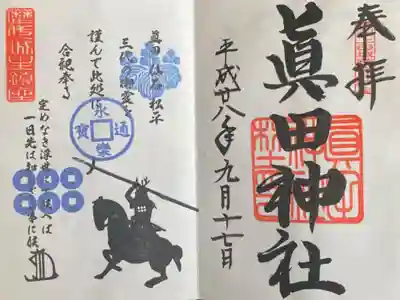 奉拝
眞田神社
平成廿八年九月十七日
眞田 仙石 松平
三代之御霊を
謹んで此処に
合祀奉る
永樂通寳
定めなき浮世にて候へば
一日先は知らざる事に候